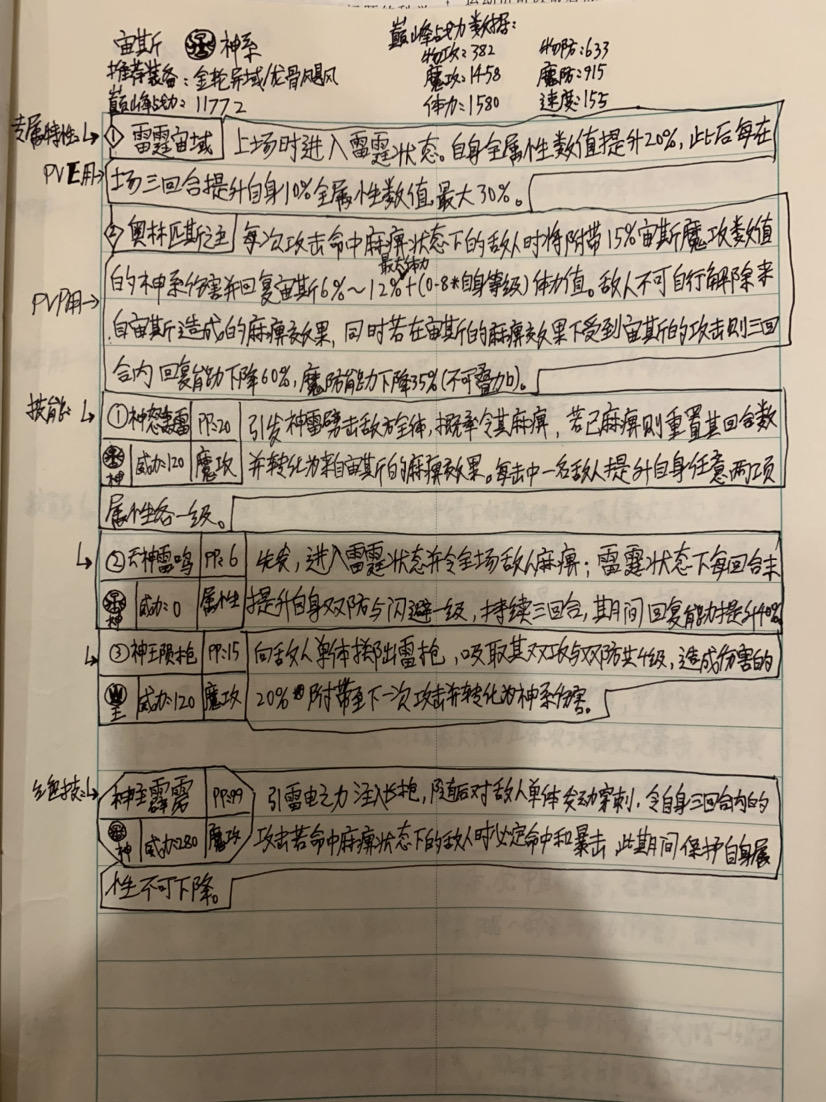 巅峰战力数据:
宙斯 神系 物攻:382 物防:633
推荐装备:金轮异域/龙骨飓风 魔攻:1458 魔防:915
巅峰战力:11772 体力:1580 速度:155
专属特性↳ ① 雷霆宙域 上场时进入雷霆状态。自身全属性数值提升20%,此后每在
PVE用→ 场三回合提升自身10%全属性数值,最大30%。
② 奥林匹斯之主 每次攻击命中麻痹状态下的敌人时将附带15%宙斯魔攻数值
最大体力
PVP用→ 的神系伤害并回复宙斯6%~12%+(0-8*自身等级)体力值。敌人不可自行解除来
自宙斯造成的麻痹效果,同时若在宙斯的麻痹效果下受到宙斯的攻击则三回
合内回复能力下降60%,魔防能力下降35%(不可叠加)。
技能:↳ ①神怒惊雷 PP:20 引发神雷劈击敌方全体,概率令其麻痹,若已麻痹则重置其回合数
神 威力:120 魔攻 并转化为来自宙斯的麻痹效果。每击中一名敌人提升自身任意两项
属性各一级。
↳ ②天神雷鸣 PP:6 先发,进入雷霆状态并令全场敌人麻痹;雷霆状态下每回合末
神 威力:0 属性 提升自身双防与闪避一级,持续三回合,其期间回复能力提升40%
↳ ③神王陨枪 PP:15 向敌人单体掷出雷枪,吸取其双攻与双防共4级,造成伤害的
王 威力:120 魔攻 20%附带至下一次攻击并转化为神系伤害。
↳ 神王霹雳 PP:99 引雷电之力注入长枪,随后对敌人单体发动穿刺,令自身三回合内的
神 威力:280 魔攻 攻击若命中麻痹状态下的敌人时必定命中和暴击,此期间保护自身属
性不可下降。